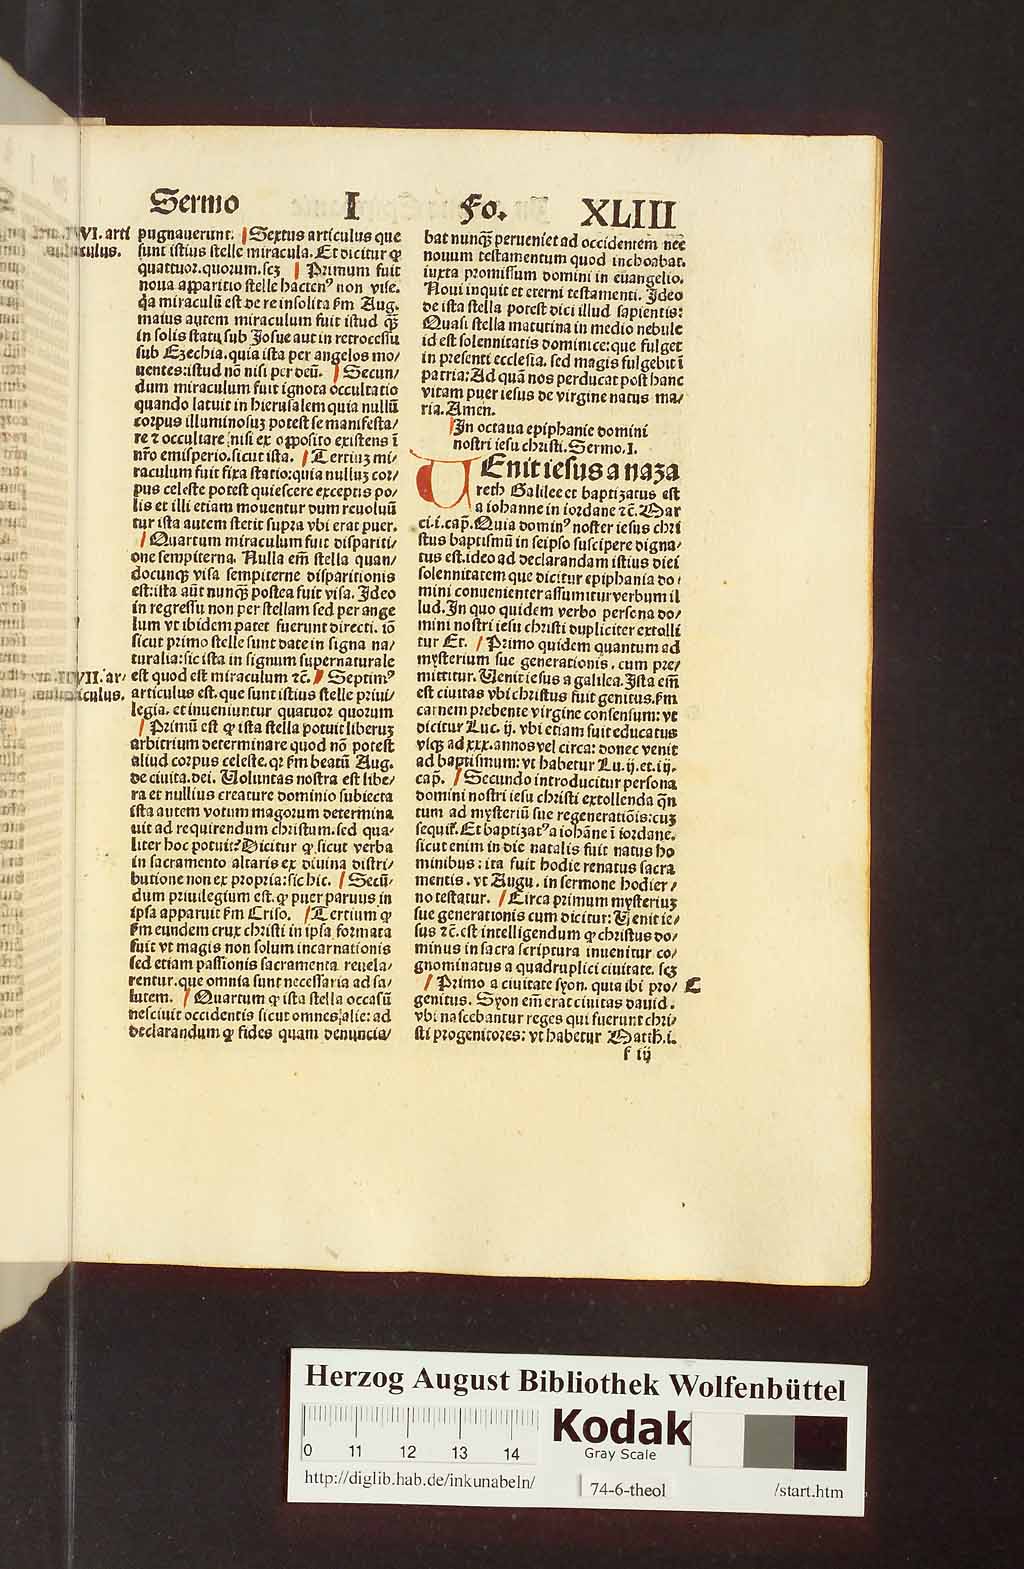 Sermo I Fo. XLIII
VI. arti
culus.
pugnauerunt. Sextus articulus que
sunt istius stelle miracula. Et dicitur ꝙ
quattuor. quorum. scꝫ Primum fuit
noua apparitio stelle hacten⁹ non vise.
Qa miraculū est de re insolita ẜm Aug.
maius autem miraculum fuit istud qͣꝫ
in solis statu sub Josue aut in retrocessu
sub Ezechia. quia ista per angelos mo/
uentes: istud nō nisi per deū. Secun/
dum miraculum fuit ignota occultatio
quando latuit in hierusalem quia nullū
corpus illuminosuꝫ potest se manifesta/
re ⁊ occultare nisi ex opposito existens ī
nr̄o emisperio. sicut ista. Tertiuꝫ mi/
raculum fuit fixa statio: quia nulluꝫ cor/
pus celeste potest quiescere exceptis po/
lis et illi etiam mouentur dum reuoluū
tur ista autem stetit supra vbi erat puer.
Quartum miraculum fuit dispariti/
one sempiterna. Nulla em̄ stella quan/
docunqꝫ visa sempiterne disparitionis
est: ista aūt nunqͣꝫ postea fuit visa. Jdeo
in regressu non per stellam sed per ange
lum vt ibidem patet fuerunt directi. iō
sicut primo stelle sunt date in signa na/
turalia: sic ista in signum supernaturale
est quod est miraculum ⁊c̄. Septim⁹
VII. ar-
ticulus.
articulus est. que sunt istius stelle priui/
legia. et inueniuntur quatuor quorum
Primū est ꝙ ista stella potuit liberuꝫ
arbitrium determinare quod nō potest
aliud corpus celeste. qꝛ ẜm beatū Aug.
de ciuita. dei. Uoluntas nostra est libe/
ra et nullius creature dominio subiecta
ista autem votum magorum determina
uit ad requirendum christum. sed qua/
liter hoc potuit? Dicitur ꝙ sicut verba
in sacramento altaris ex diuina distri/
butione non ex propria: sic hic. Secū/
dum priuilegium est. ꝙ puer paruus in
ipsa apparuit ẜm Criso. Tertium ꝙ
ẜm eundem crux christi in ipsa formata
fuit vt magis non solum incarnationis
sed etiam passionis sacramenta reuela/
rentur. que omnia sunt necessaria ad sa/
lutem. Quartum ꝙ ista stella occasū
nesciuit occidentis sicut omnes alie: ad
declarandum ꝙ fides quam denuncia/
bat nunqͣꝫ perueniet ad occidentem nec
nouum testamentum quod inchoabat.
iuxta promissum domini in euangelio.
Noui inquit et eterni testamenti. Jdeo
de ista stella potest dici illud sapientis:
Quasi stella matutina in medio nebule
id est solennitatis dominice: que fulget
in presenti ecclesia. sed magis fulgebit ī
patria: Ad quā nos perducat post hanc
vitam puer iesus de virgine natus ma/
ria. Amen.
Jn octaua epiphanie domini
nostri iesu christi. Sermo. I.
UEnit iesus a naza
reth Galilee et baptizatus est
a iohanne in iordane ⁊c̄. Mar
ci. i. cap̄. Quia domin⁹ noster iesus chri
stus baptismū in seipso suscipere digna/
tus est. ideo ad declarandam istius diei
solennitatem que dicitur epiphania do/
mini conuenienter assumitur verbum il
lud. Jn quo quidem verbo persona do/
mini nostri iesu christi dupliciter extolli
tur Et. Primo quidem quantum ad
mysterium sue generationis. cum pre/
mittitur. Uenit iesus a galilea. Jsta em̄
est ciuitas vbi christus fuit genitus. ẜm
carnem prebente virgine consensum: vt
dicitur Luc. ij. vbi etiam fuit educatus
vsqꝫ ad xxx. annos vel circa: donec venit
ad baptismum: vt habetur Lu. ij. et. iij.
cap̄. Secundo introducitur persona
domini nostri iesu christi extollenda qn̄
tum ad mysteriū sue regeneratiōis: cuꝫ
sequit̄. Et baptizat⁹ a iohāne ī iordane.
sicut enim in die natalis fuit natus ho
minibus: ita fuit hodie renatus sacra
mentis. vt Augu. in sermone hodier/
no testatur. Circa primum mysteriuꝫ
sue generationis cum dicitur: Uenit ie/
sus ⁊c̄. est intelligendum ꝙ christus do/
minus in sacra scriptura inuenitur co/
gnominatus a quadruplici ciuitate. scꝫ
Primo a ciuitate syon. quia ibi pro/ C
genitus. Syon em̄ erat ciuitas dauid.
vbi nascebantur reges qui fuerunt chri/
sti progenitores: vt habetur Matth. i.
f iij
Herzog August Bibliothek Wolfenbüttel
0 11 12 13 14
Kodak
Gray Scale
http://diglib.hab.de/inkunabeln/ 74-6-theol /start.htm